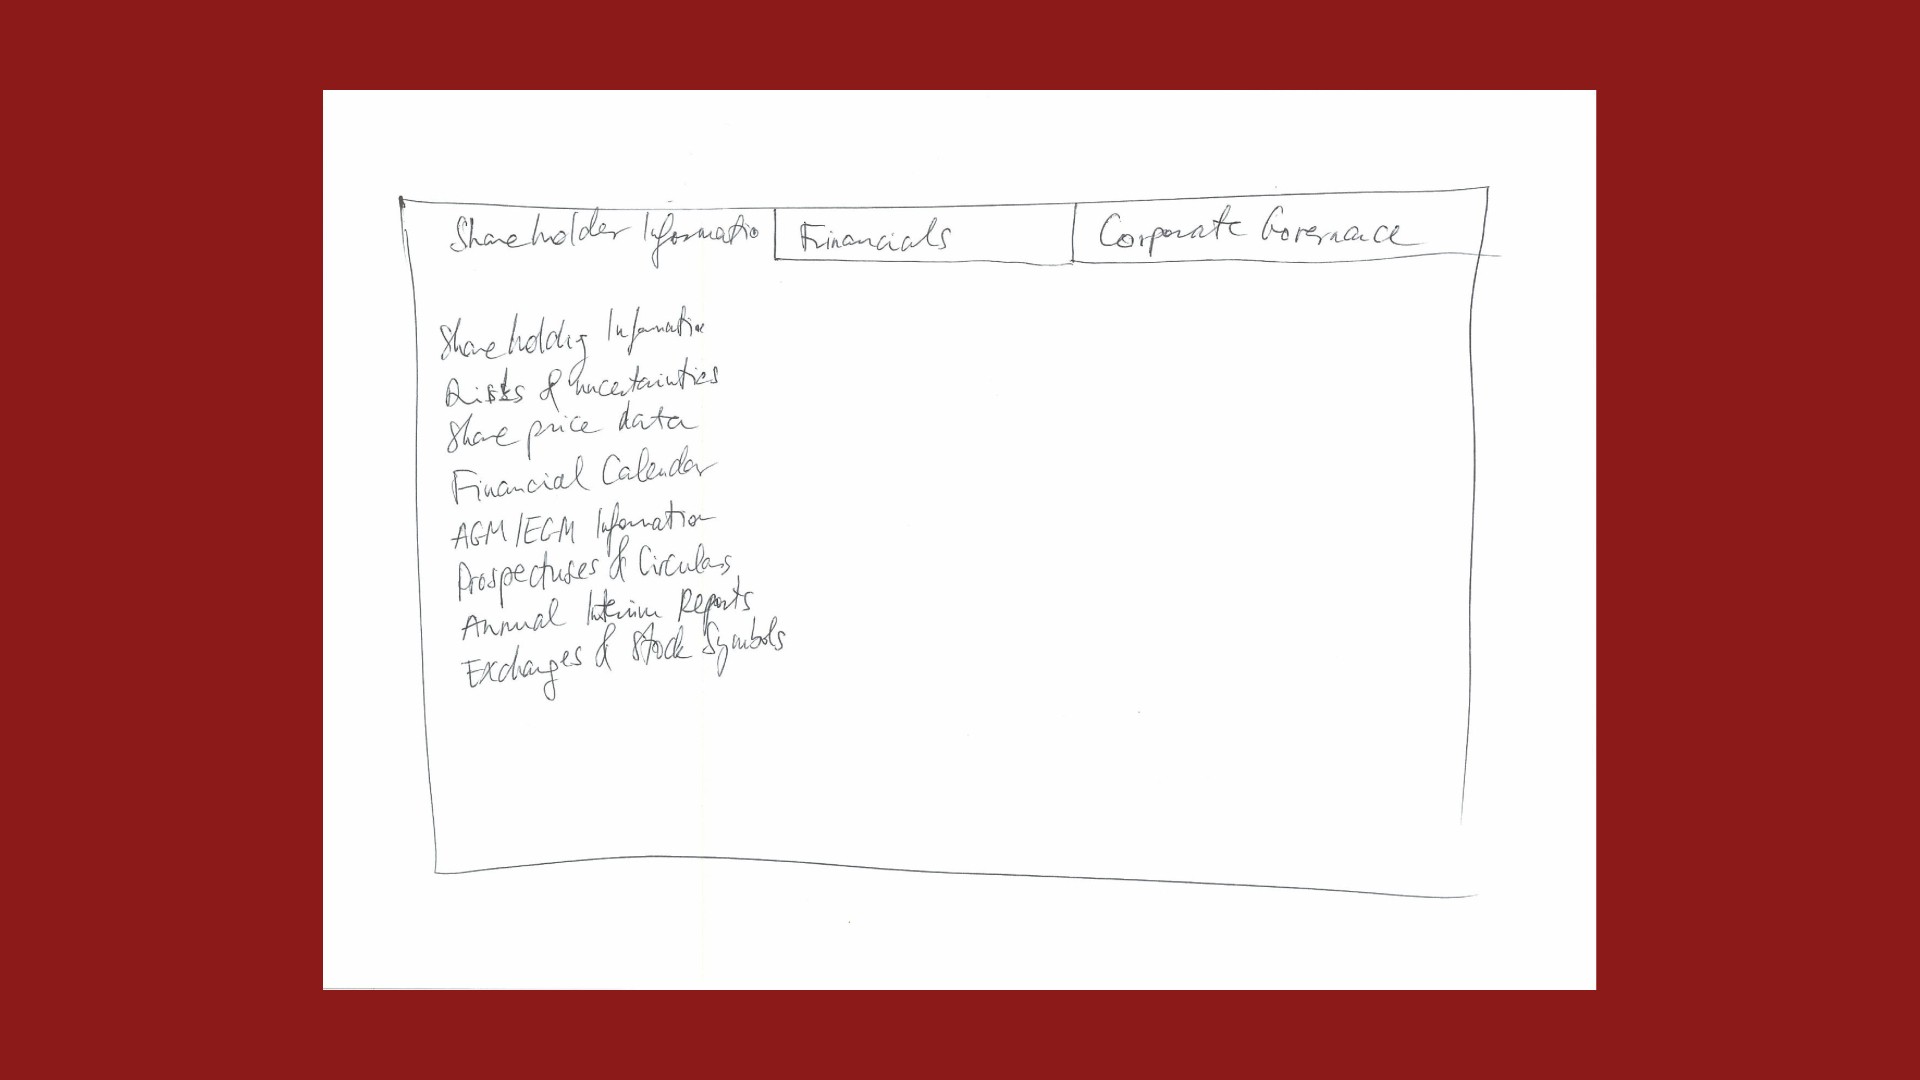 Shareholder Informatio
Financials
Corporate Governance
Shareholdig Information
Risks & uncertainties
Share price data
Financial Calendar
AGM/EGM Information
Prospectuses & Circulars
Annual Interim Reports
Exchanges & Stock Symbols